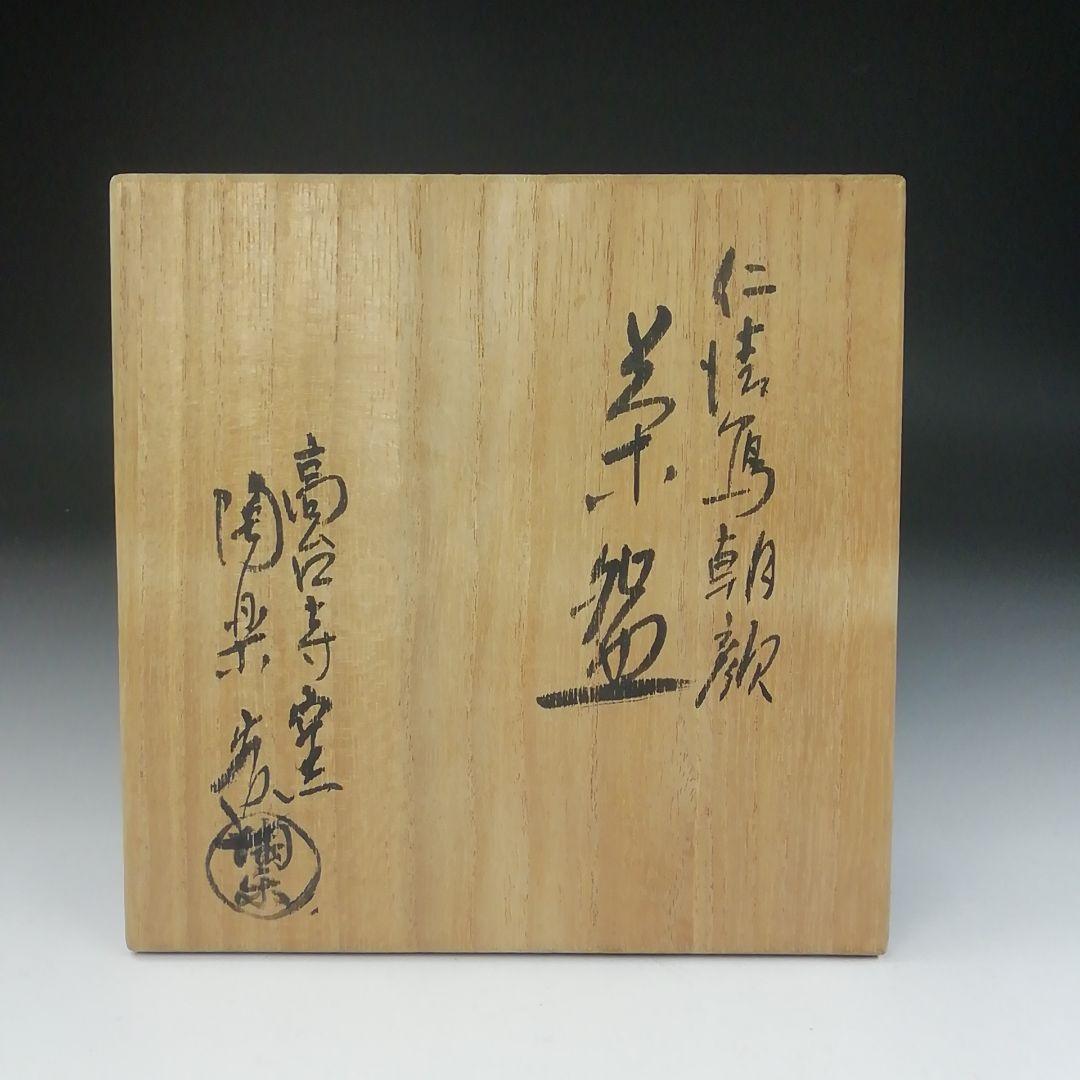 仁清写朝顔
茶盌
高台寺窯
陶楽
陶楽